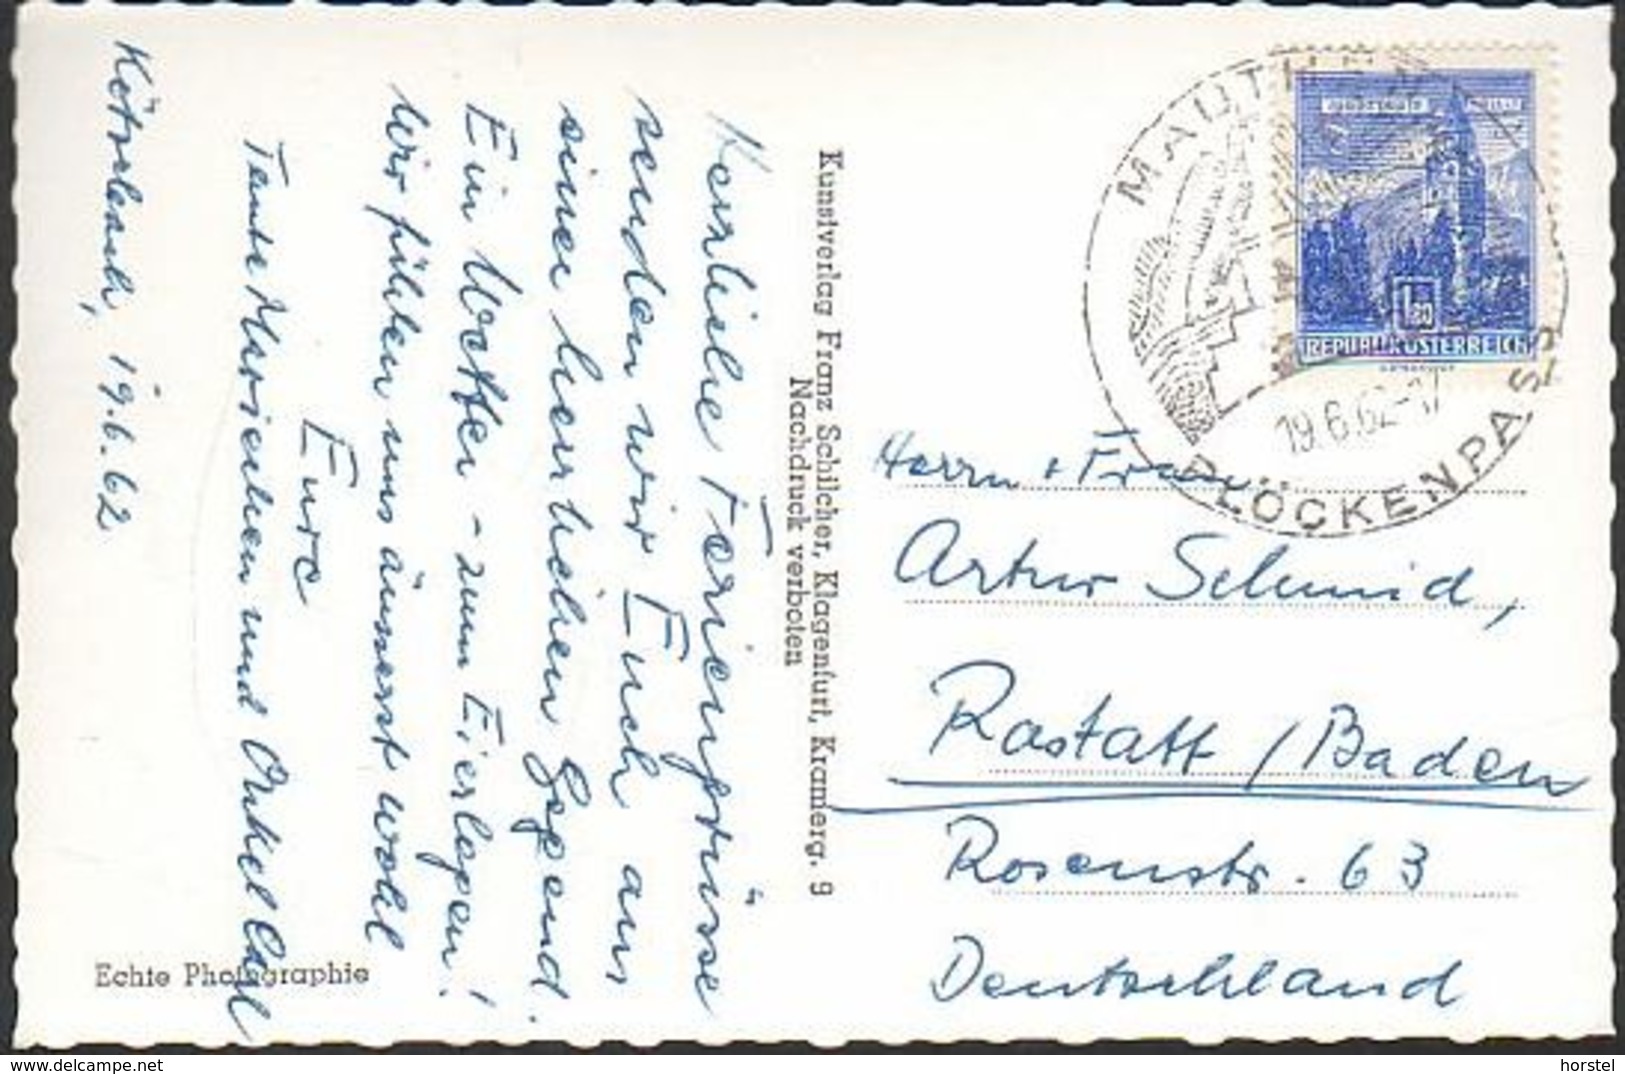 Kötschach, 19.6.62
Herzliche Feriengrüsse
senden wir Euch aus
einer herrlichen Gegend.
Ein Wetter - zum Eierlegen!
Wir fühlen uns äusserst wohl
Eure
Tante Mariechen und Onkel Carl
Kunstverlag Franz Schilcher, Klagenfurt, Kramerg. 9
Nachdruck verboten
Echte Photographie
MAUTHEN
19.6.62-17
PLÖCKENPASS
1.20
REPUBLIK ÖSTERREICH
Herrn + Frau
Artur Schmid,
Rastatt / Baden
Rosenstr. 63
Deutschland
horstel